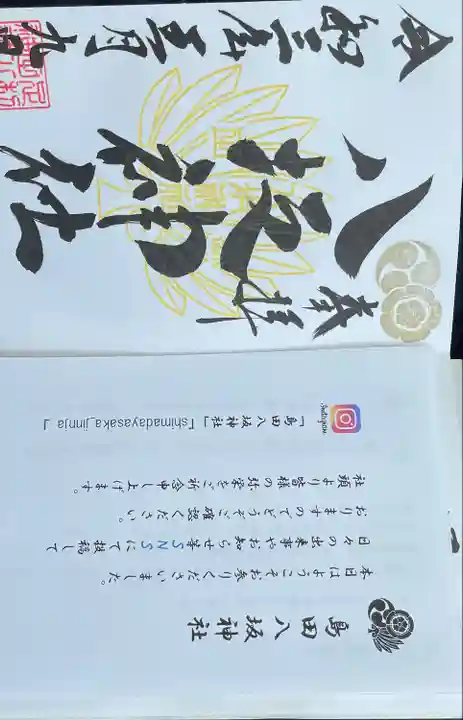 奉拝
八坂神社
令和三年五月九日
島田八坂神社
本日はようこそお参りくださいました。
日々の出来事やお知らせ等SNSにて投稿して
おりますのでどうぞご確認ください。
社頭より皆様の弥栄をご祈念申し上げます。
Instagram
「島田八坂神社」「shimadayasaka_jinnja」